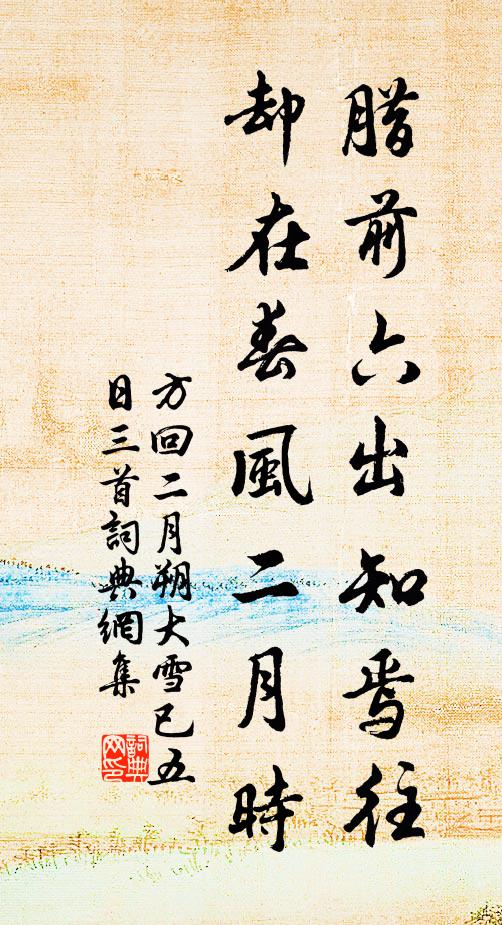 腊前六出知焉往
却在春風二月時
方回二月朔大雪已五
日三首詞典網集
詞典
网印